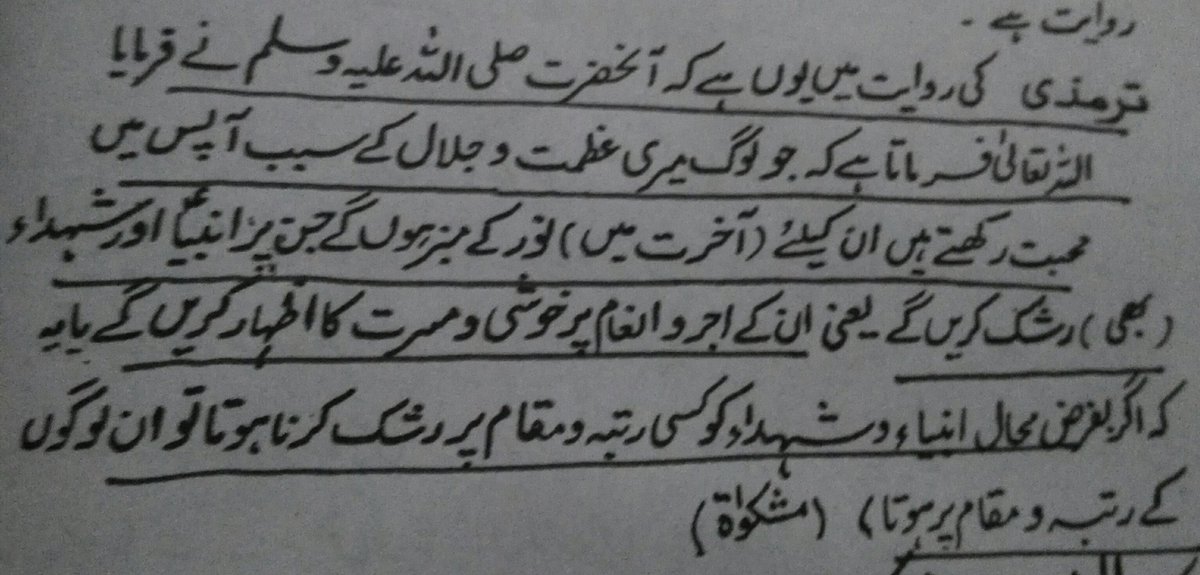 روایت ہے ۔
ترمذی کی روایت میں یوں ہے کہ آنحضرت صلی اللہ علیہ وسلم نے فرمایا
اللہ تعالیٰ فرماتا ہے کہ جو لوگ میری عظمت و جلال کے سبب آپس میں
محبت رکھتے ہیں ان کیلئے (آخرت میں) نور کے منبر ہوں گے جن پر انبیاءؑ اور شہداء
(بھی) رشک کریں گے یعنی ان کے اجر و انعام پر خوشی و مسرت کا اظہار کریں گے یا یہ
کہ اگر بفرض محال انبیاء و شہداء کو کسی رتبہ و مقام پر رشک کرنا ہوتا تو ان لوگوں
کے رتبہ و مقام پر ہوتا) (مشکوٰۃ)